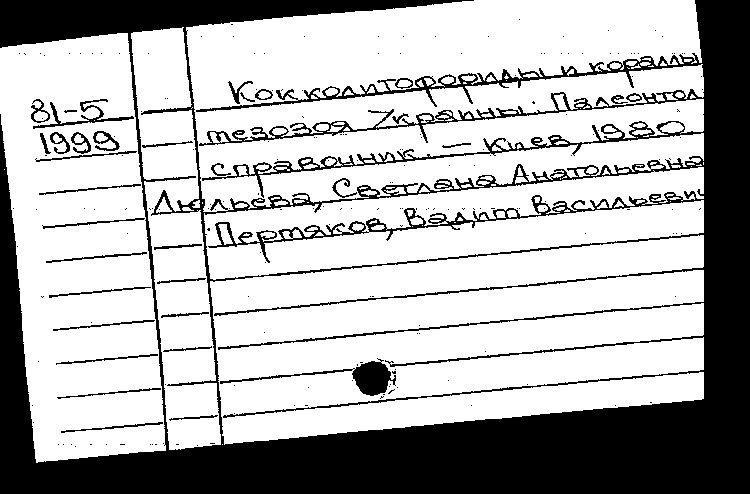 81-5
1999
Кокколитофориды и кораллы
мезозоя Украины: Палеонтол
справочник. – Киев, 1980.
Люльева, Светлана Анатольевна
Пермяков, Вадим Васильевич